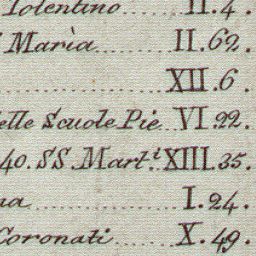 Tolentino......II.4.
Maria......II.62.
......XII.6.
elle Scuole Pie...VI.22.
40. SS. Marti XIII.35.
na......I.24.
Coronati......X.49.